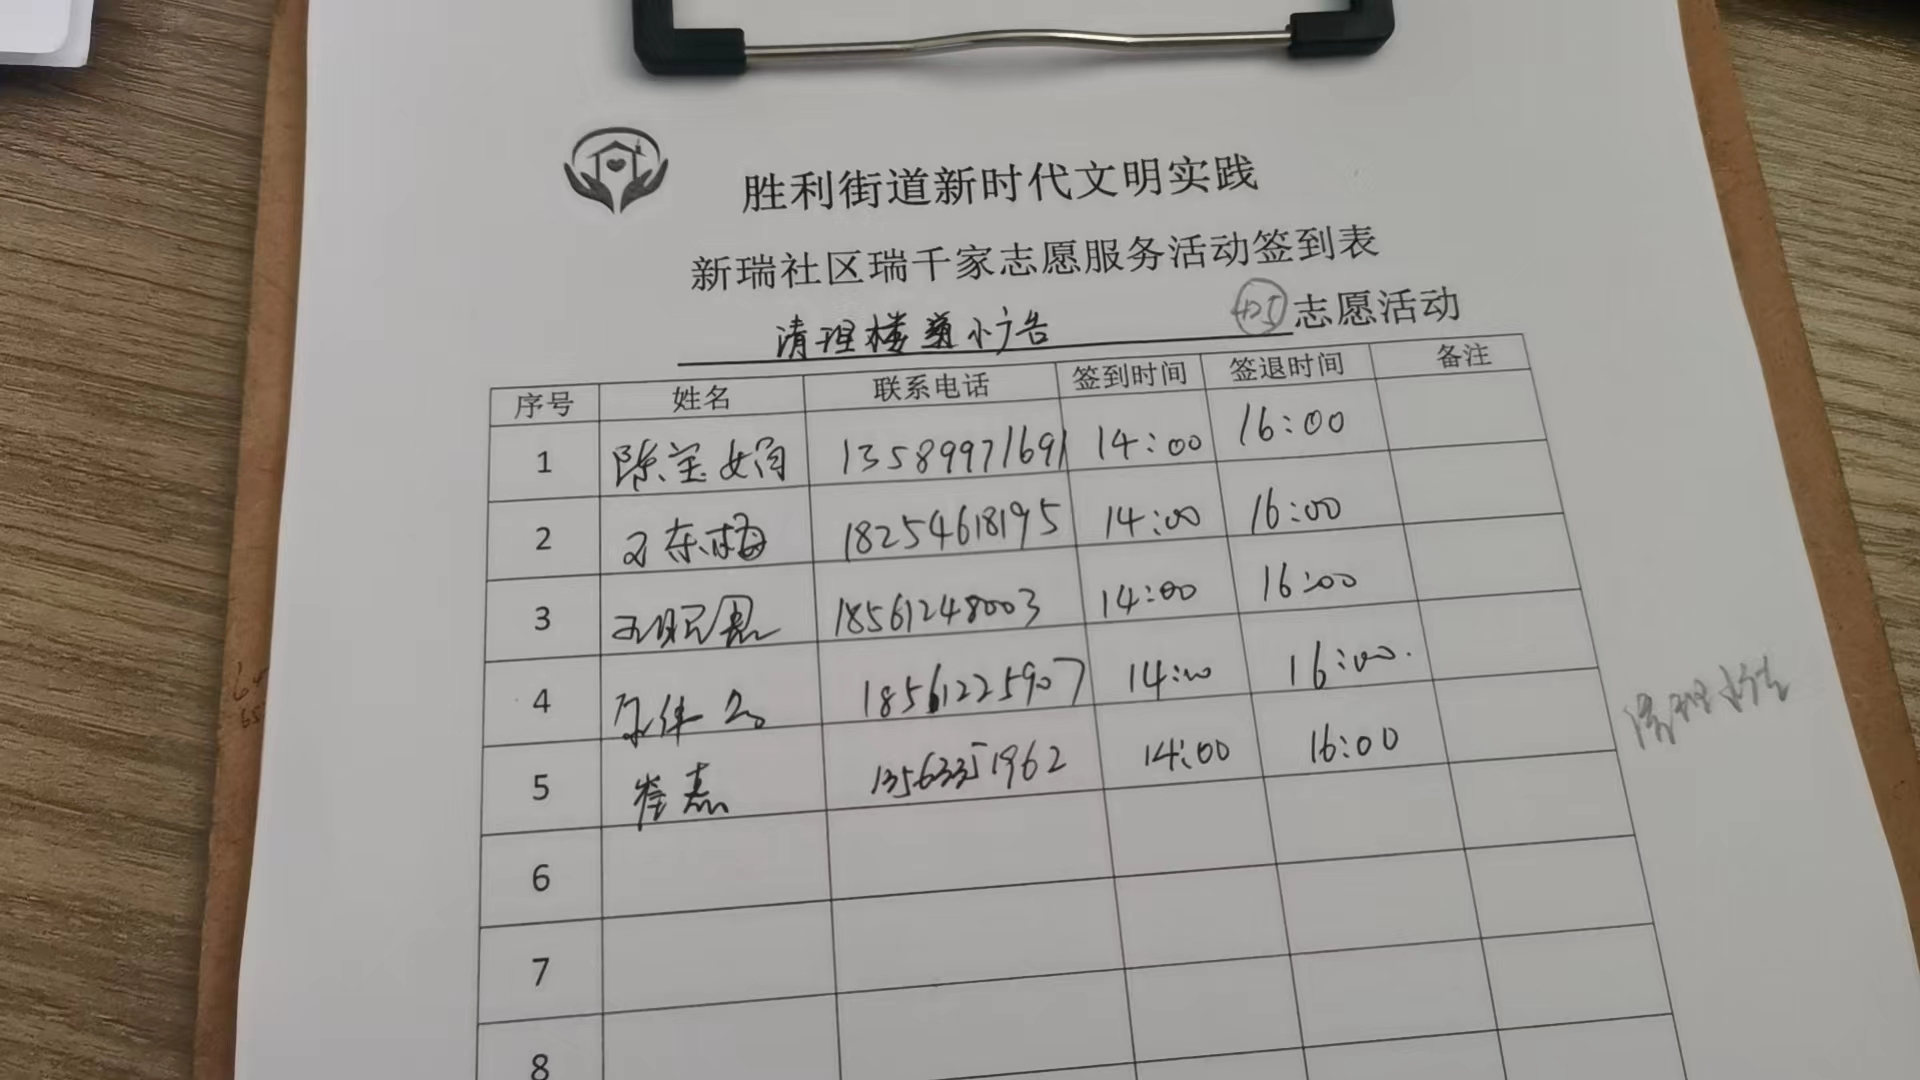 胜利街道新时代文明实践
新瑞社区瑞千家志愿服务活动签到表
清理楼道小广告 425 志愿活动
序号 姓名 联系电话 签到时间 签退时间 备注
1 陈莹娟 13589971691 14:00 16:00
2 王东梅 18254618195 14:00 16:00
3 18561248003 14:00 16:00
4 18561225907 14:00 16:00.
5 崔燕 13563351962 14:00 16:00
6
7
8